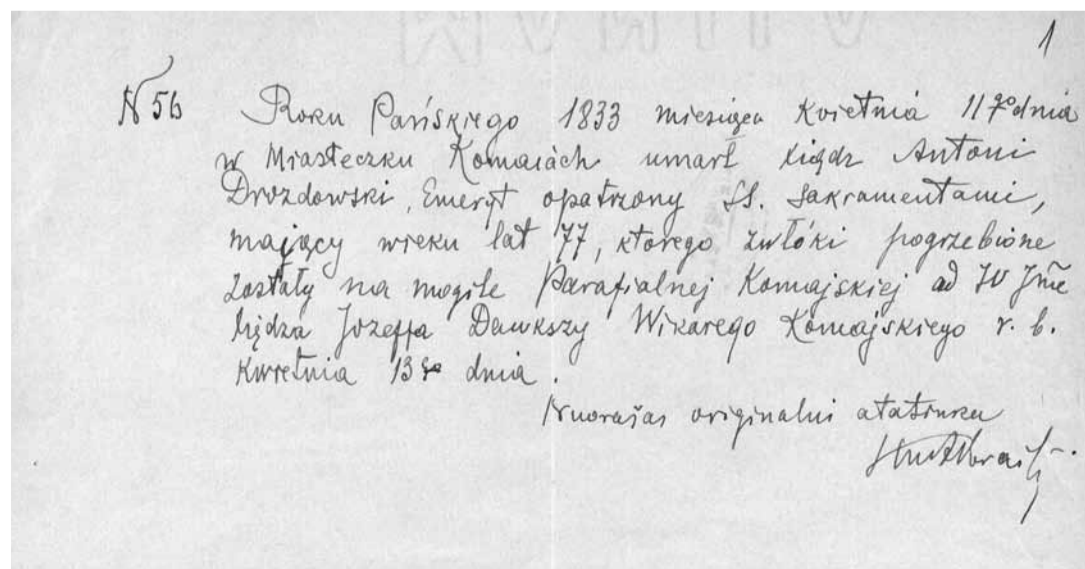 1
N 56 Roku Pańskiego 1833 miesiąca Kwietnia 11go dnia
w Miasteczku Komaiach umarł xiądz Antoni
Drozdowski, Emeryt opatrzony SS. Sakramentami,
mający wieku lat 77, ktorego zwłóki pogrzebione
zostały na mogile Parafialnej Komajskiej od
Jozeffa Dawkszy Wikarego Komajskiego r. b.
Kwietnia 13go dnia.
Nuorašas originalui atatinka